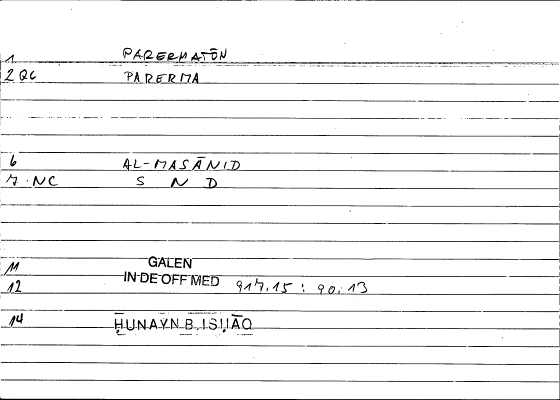 1 PARERMATŌN
2 QC PARERMA
6 AL-MASĀNID
7 · NC S N D
11 GALEN
12 IN DE OFF MED 917.15 : 90.13
14 ḤUNAYN B. ISḤĀQ